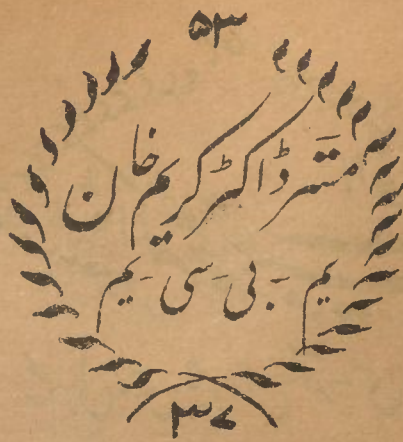 ۵۳
مستر ڈاکٹر کریم خان
یم - بی - سی - یم
۳۷